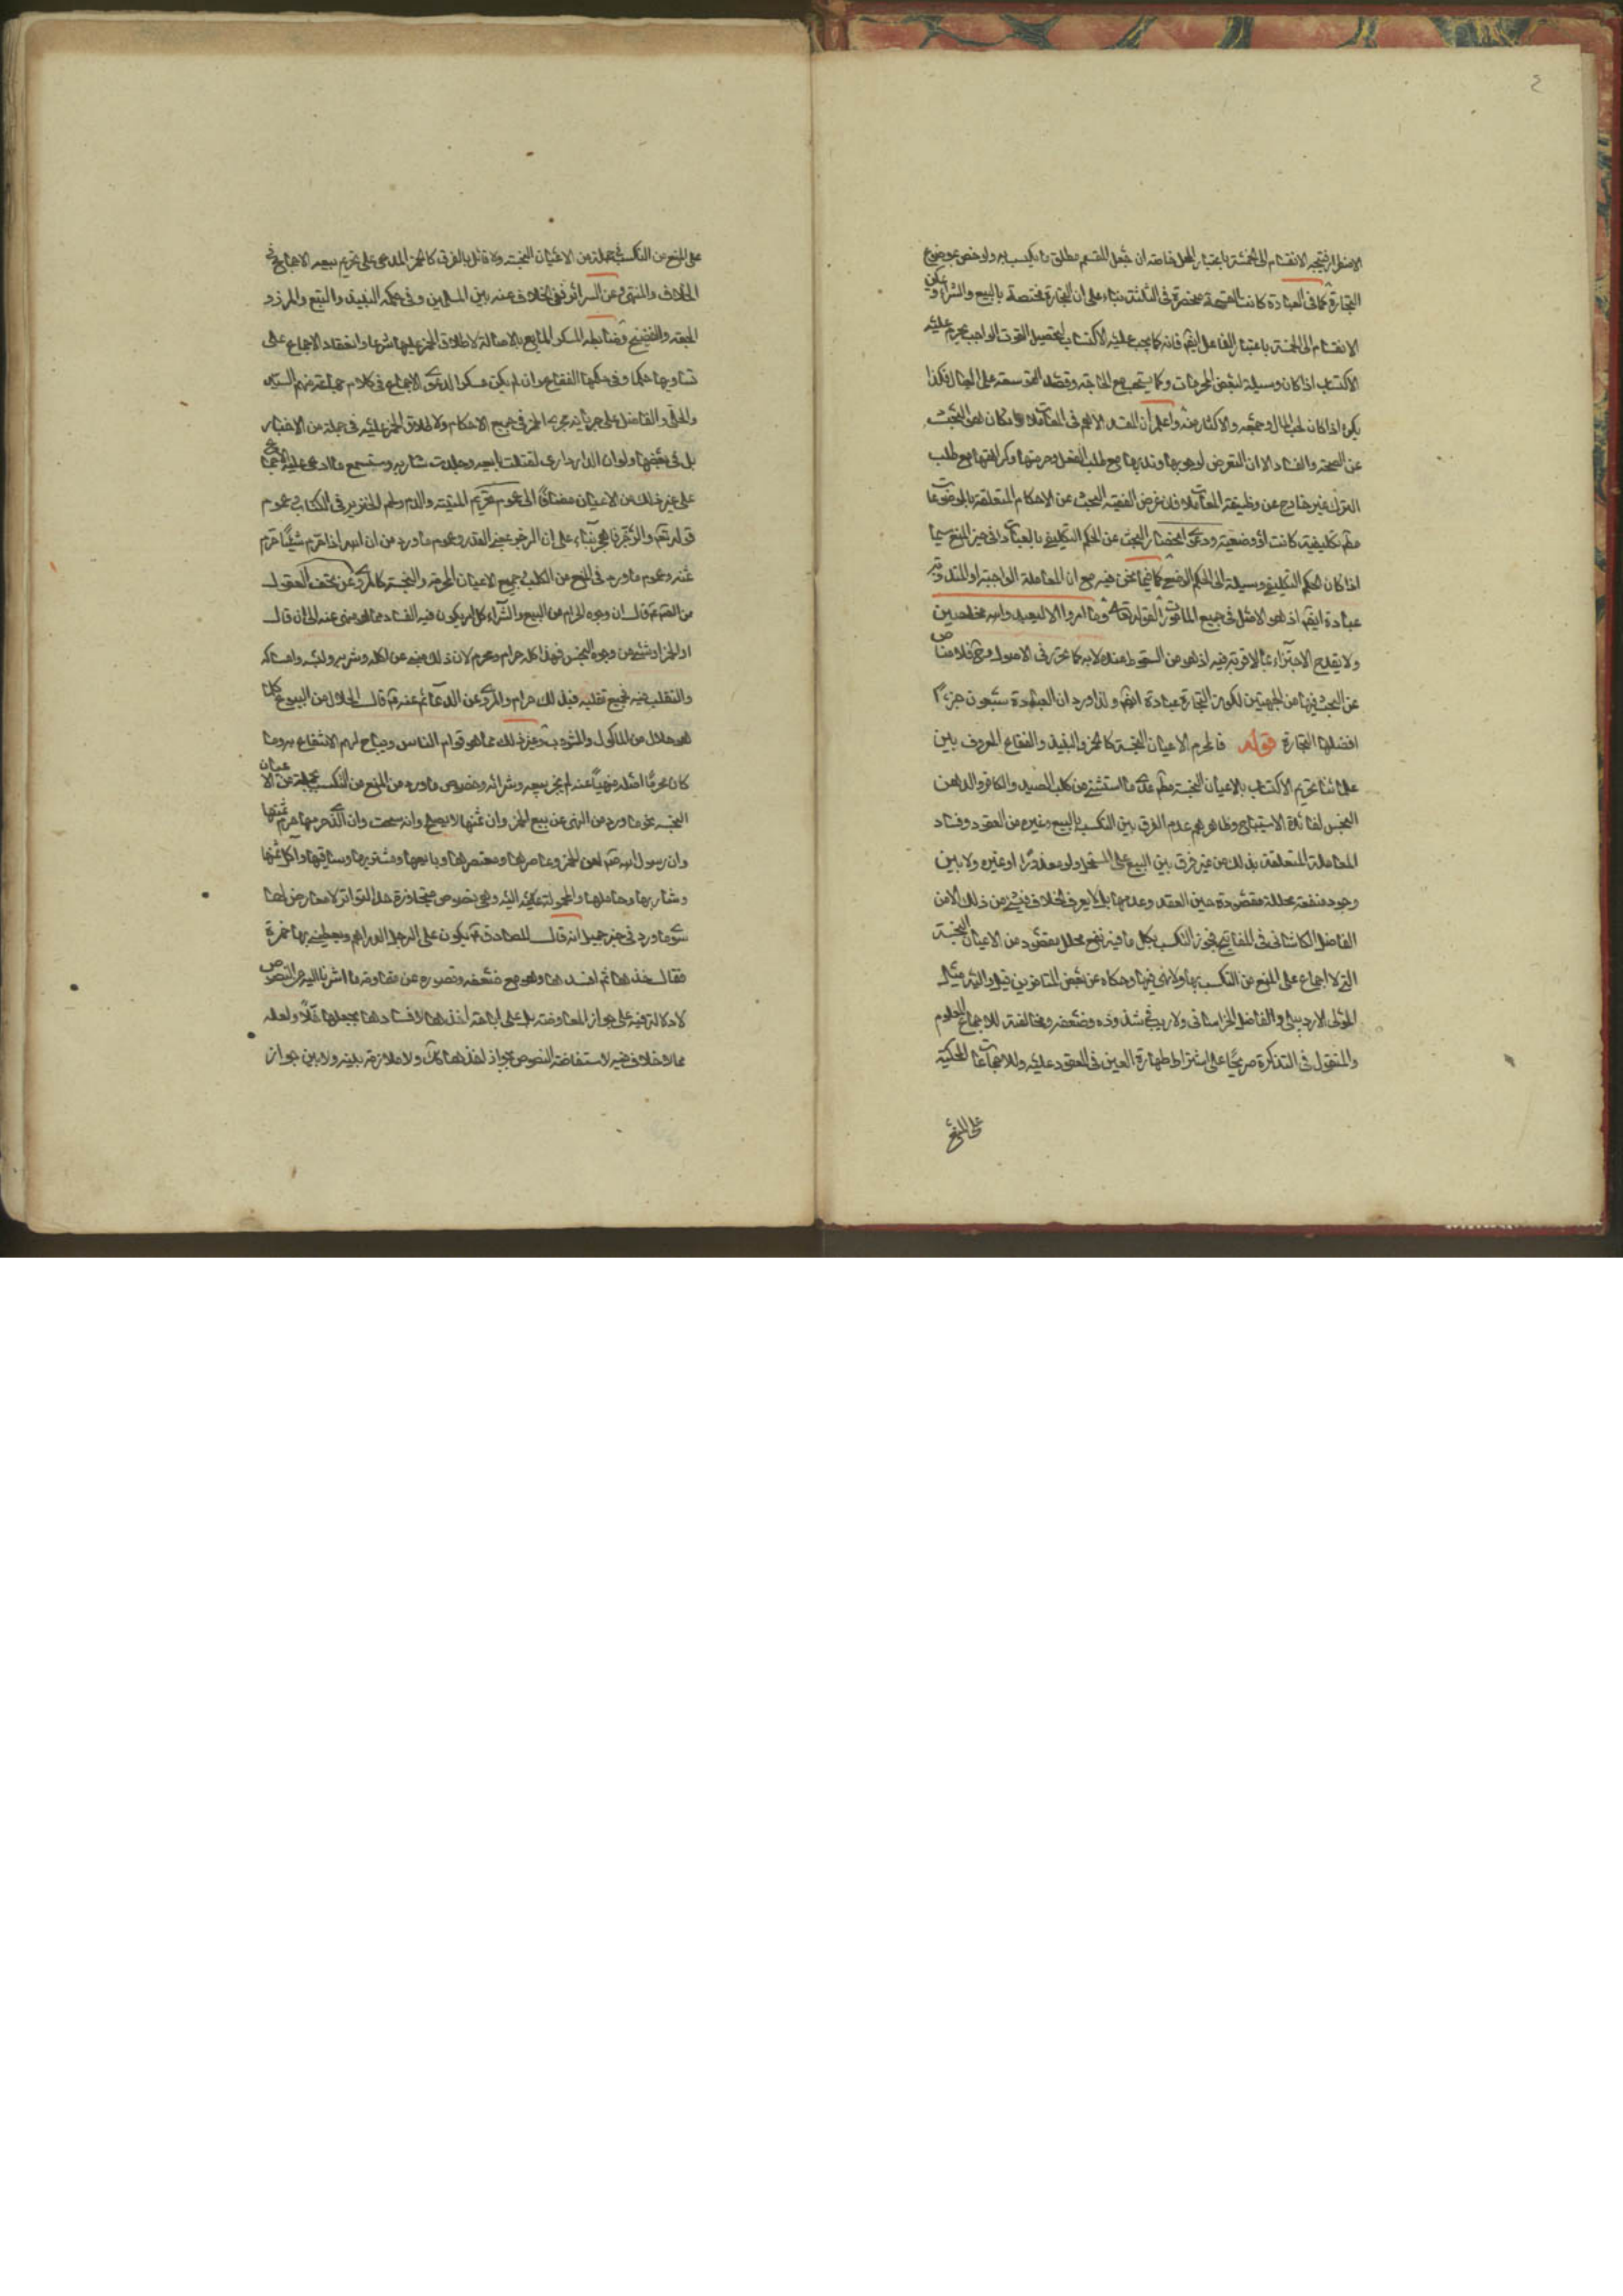 ٤
الانقسام الى الخمسة باعتبار المحل خاصة ان جعل المقسم مطلق ما يكتسب به ولو خص بموضوع
التجارة كما في العبادة كانت القسمة منحصرة في الثلثة بناء على ان التجارة مختصة بالبيع والشراء و يمكن
الانقسام الى الخمسة باعتبار الفاعل ايضا فانه كما يجب عليه الاكتساب لتحصيل القوت الواجب يحرم عليه
الاكتساب اذا كان وسيلة لبعض المحرمات وكما يستحب مع الحاجة وقصد التوسعة على العيال فكذا
يكره اذا كان لحب المال وجمعه والاكثار منه واعلم ان المقصد الاهم في المعاملات وان كان هو البحث
عن الصحة والفساد الا ان التعرض لوجوبها وندبها مع طلب الفعل وحرمتها وكراهتها مع طلب
الترك غير خارج عن وظيفة المعاملات فان غرض الفقيه البحث عن الاحكام المتعلقة بالموضوعات
مطم تكليفية كانت او وضعية ودعوى انحصار البحث عن الحكم التكليفي بالعبادات في حيز المنع سيما
اذا كان الحكم التكليفي وسيلة الى الحكم الوضعي كما فيما نحن فيه مع ان المعاملة الواجبة او المندوبة
عبادة ايضا اذ هو الاصل في جميع المأمور به لقوله تعالى وما امروا الا ليعبدوا الله مخلصين
ولا يقدح الاجتزاء بما لا قربة فيه اذ هو من السقوط عنده لا به كما تحرر في الاصول وح فلا مناص
عن البحث فيها من الجهتين لكون التجارة عبادة ايضا ولذا ورد ان العبادة سبعون جزءا
افضلها التجارة قوله فالمحرم الاعيان النجسة كالخمر والنبيذ والفقاع المعروف بين
علمائنا تحريم الاكتساب بالاعيان النجسة مطم عدى ما استثنى من كلب الصيد والكافر والدهن
النجس لفائدة الاستصباح وظاهرهم عدم الفرق بين التكسب بالبيع وغيره من العقود وفساد
المعاملة المتعلقة بذلك من غير فرق بين البيع على المستحل ولو معذورا او غيره ولا بين
وجود منفعة محللة مقصودة حين العقد وعدمها بل لا يعرف الخلاف في شيء من ذلك الا من
الفاضل الكاشاني في المفاتيح فجوز التكسب بكل ما فيه نفع محلل مقصود من الاعيان النجسة
التي لا اجماع على المنع من التكسب بها ولا نهي فيها وحكاه عن بعض المتاخرين قيل واليه مثل
المولى الاردبيلي والفاضل الخراساني ولا ريب في شذوذه وضعفه ومخالفته للاجماع المعلوم
والمنقول في التذكرة صريحا على اشتراط طهارة العين في المعقود عليه وللاجماعات المحكية
على المنع
على المنع من التكسب في جملة من الاعيان النجسة ولا قائل بالفرق كالخمر المدعى على تحريم بيعه الاجماع في
الخلاف والمنتهى وعن السرائر نفي الخلاف عنه بين المسلمين وفي حكمه النبيذ والبتع والمزر و
الجعة والفضيخ وضابطه المسكر المائع بالاصالة لاطلاق الخمر عليها شرعا وانعقاد الاجماع على
تساويها حكما وفي حكمها الفقاع وان لم يكن مسكرا لدعوى الاجماع في كلام جماعة منهم السيد
والحلي والفاضل على جريانه مجرى الخمر في جميع الاحكام ولاطلاق الخمر عليه في جملة من الاخبار
بل في بعضها ولو ان الدار داري لقتلت بايعه وجلدت شاربه وستسمع ما ادعي عليه الاجماع
على غير ذلك من الاعيان مضافا الى عموم تحريم الميتة والدم ولحم الخنزير في الكتاب وعموم
قوله تعم والرجز فاهجر بناء على ان الرجز بمعنى القذر وعموم ما ورد من ان الله اذا حرم شيئا حرم
ثمنه وعموم ما ورد في المنع من التكسب بجميع الاعيان المحرمة والنجسة كالمروي عن تحف العقول
من الصم قال ان وجوه الحرام من البيع والشراء كل امر يكون فيه الفساد مما هو منهي عنه الى ان قال
او الخمر او شيء من وجوه النجس فهذا كله حرام ومحرم لان ذلك منهي عن اكله وشربه ولبسه وامساكه
والتقلب فيه فجميع تقلبه في ذلك حرام والمروي عن الدعائم عنه قم قال الحلال من البيوع كلما
هو حلال من الماكول والمشروب وغير ذلك مما هو قوام للناس ويباح لهم الانتفاع به وما
كان محرما اصله منهيا عنه لم يجز بيعه وشرائه وخصوص ما ورد من المنع من التكسب بجملة من الاعيان
النجسة نحو ما ورد من النهي عن بيع الخمر وان ثمنها لا يصلح وانه سحت وان الذي حرمها حرم ثمنها
وان رسول الله صم لعن الخمر وعاصرها ومعتصرها وبايعها ومشتريها وساقيها واكل ثمنها
وشاربها وحاملها والمحمولة اليه وهي نصوص متجاوزة حد التواتر لا معارض لها
سوى ما ورد في خبر جميل انه قال للصادق قم يكون على الرجل الدراهم فيعطيني بها خمرة
فقال خذها ثم افسدها وهو مع ضعفه وقصوره عن مقاومة ما اشرنا اليه من النصوص
لا دلالة فيه على جواز المعاوضة بل على اباحة اخذها لافسادها بجعلها خلا ولعله
مما لا خلاف فيه لاستفاضة النصوص بجواز اخذها كك ولا ملازمة بينه ولا بين جواز